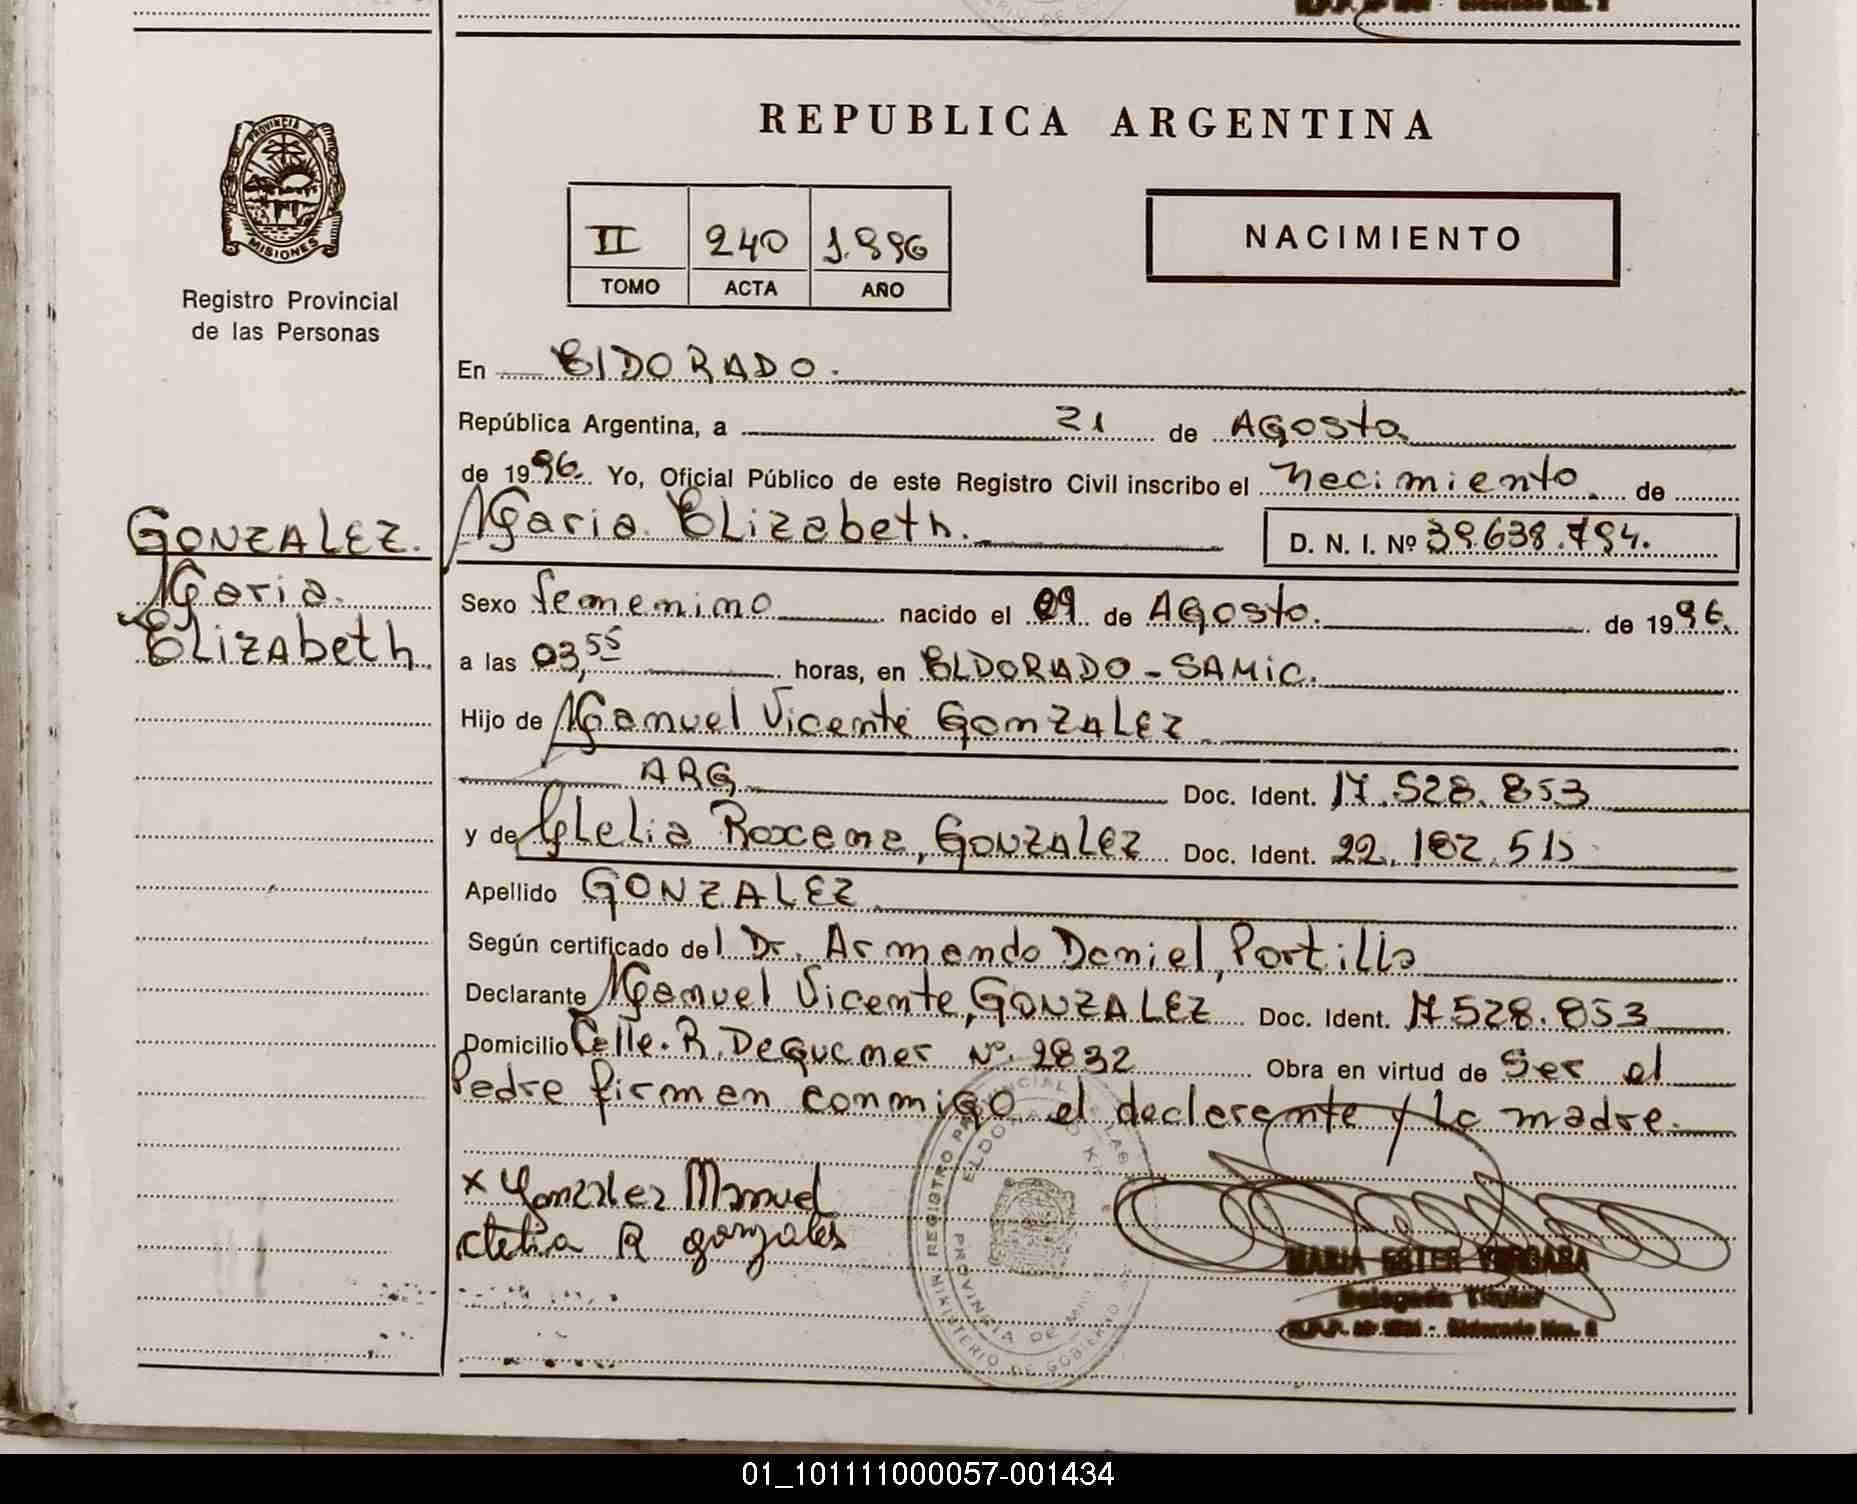 REPUBLICA ARGENTINA
PROVINCIA DE MISIONES
Registro Provincial
de las Personas
II 240 1.996
TOMO ACTA AÑO
NACIMIENTO
En ElDORADO.
República Argentina, a 21 de AGosto
de 1996. Yo, Oficial Público de este Registro Civil inscribo el Nacimiento. de
Maria Elizabeth. D. N. I. Nº 39.638.794.
GONZALEZ.
Maria
Elizabeth
Sexo femenino nacido el 09 de AGosto. de 1996.
a las 03,55 horas, en ELDORADO - SAMic.
Hijo de Manuel Vicente GonZALEZ
ARG. Doc. Ident. 17.528.853
y de Clelia Roxana, GONZALEZ Doc. Ident. 22.182.515
Apellido GONZALEZ.
Según certificado del Dr. Armando Daniel, Portillo
Declarante Manuel Vicente, GONZALEZ Doc. Ident. 17528.853
Domicilio Calle. R. Nº. 2832 Obra en virtud de Ser el
Padre firman conmigo el declarante y la madre.
x Gonzalez Manuel
Clelia R gonzales
REGISTRO PROVINCIAL DE LAS
ELDORADO
PROVINCIA DE MISIONES
MINISTERIO DE GOBIERNO
MARIA ESTER VERGARA
Delegada Titular
01_101111000057-001434